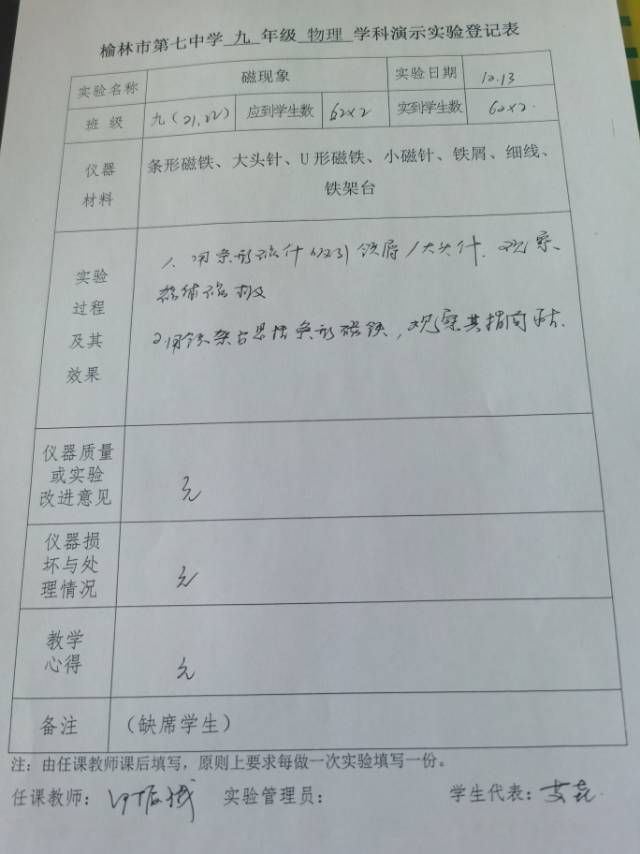 榆林市第七中学 九 年级 物理 学科演示实验登记表
实验名称 磁现象 实验日期 12.13
班 级 九(21,22) 应到学生数 62×2 实到学生数 62×2.
仪器
材料
条形磁铁、大头针、U形磁铁、小磁针、铁屑、细线、
铁架台
实验
过程
及其
效果
1、用条形磁 吸引铁屑/大头针.观察、
磁极
2.用铁架台悬挂条形磁铁,观察其指南
仪器质量
或实验
改进意见
无
仪器损
坏与处
理情况
无
教学
心得
无
备注 (缺席学生)
注:由任课教师课后填写,原则上要求每做一次实验填写一份。
任课教师: 实验管理员: 学生代表: